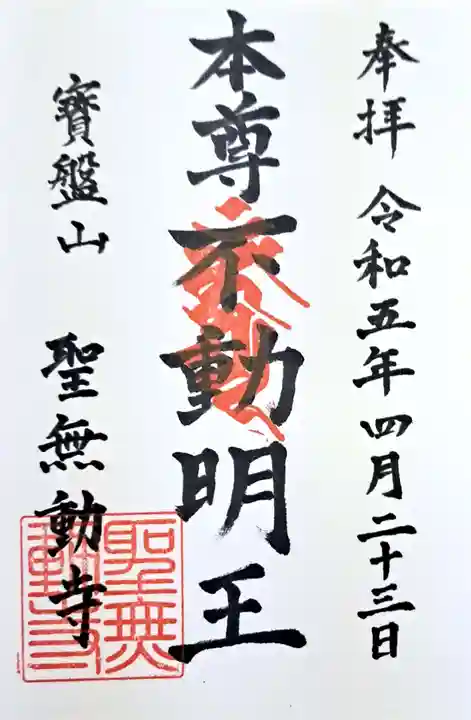 奉拝 令和五年四月二十三日
本尊不動明王
寶盤山 聖無動寺
聖無動寺